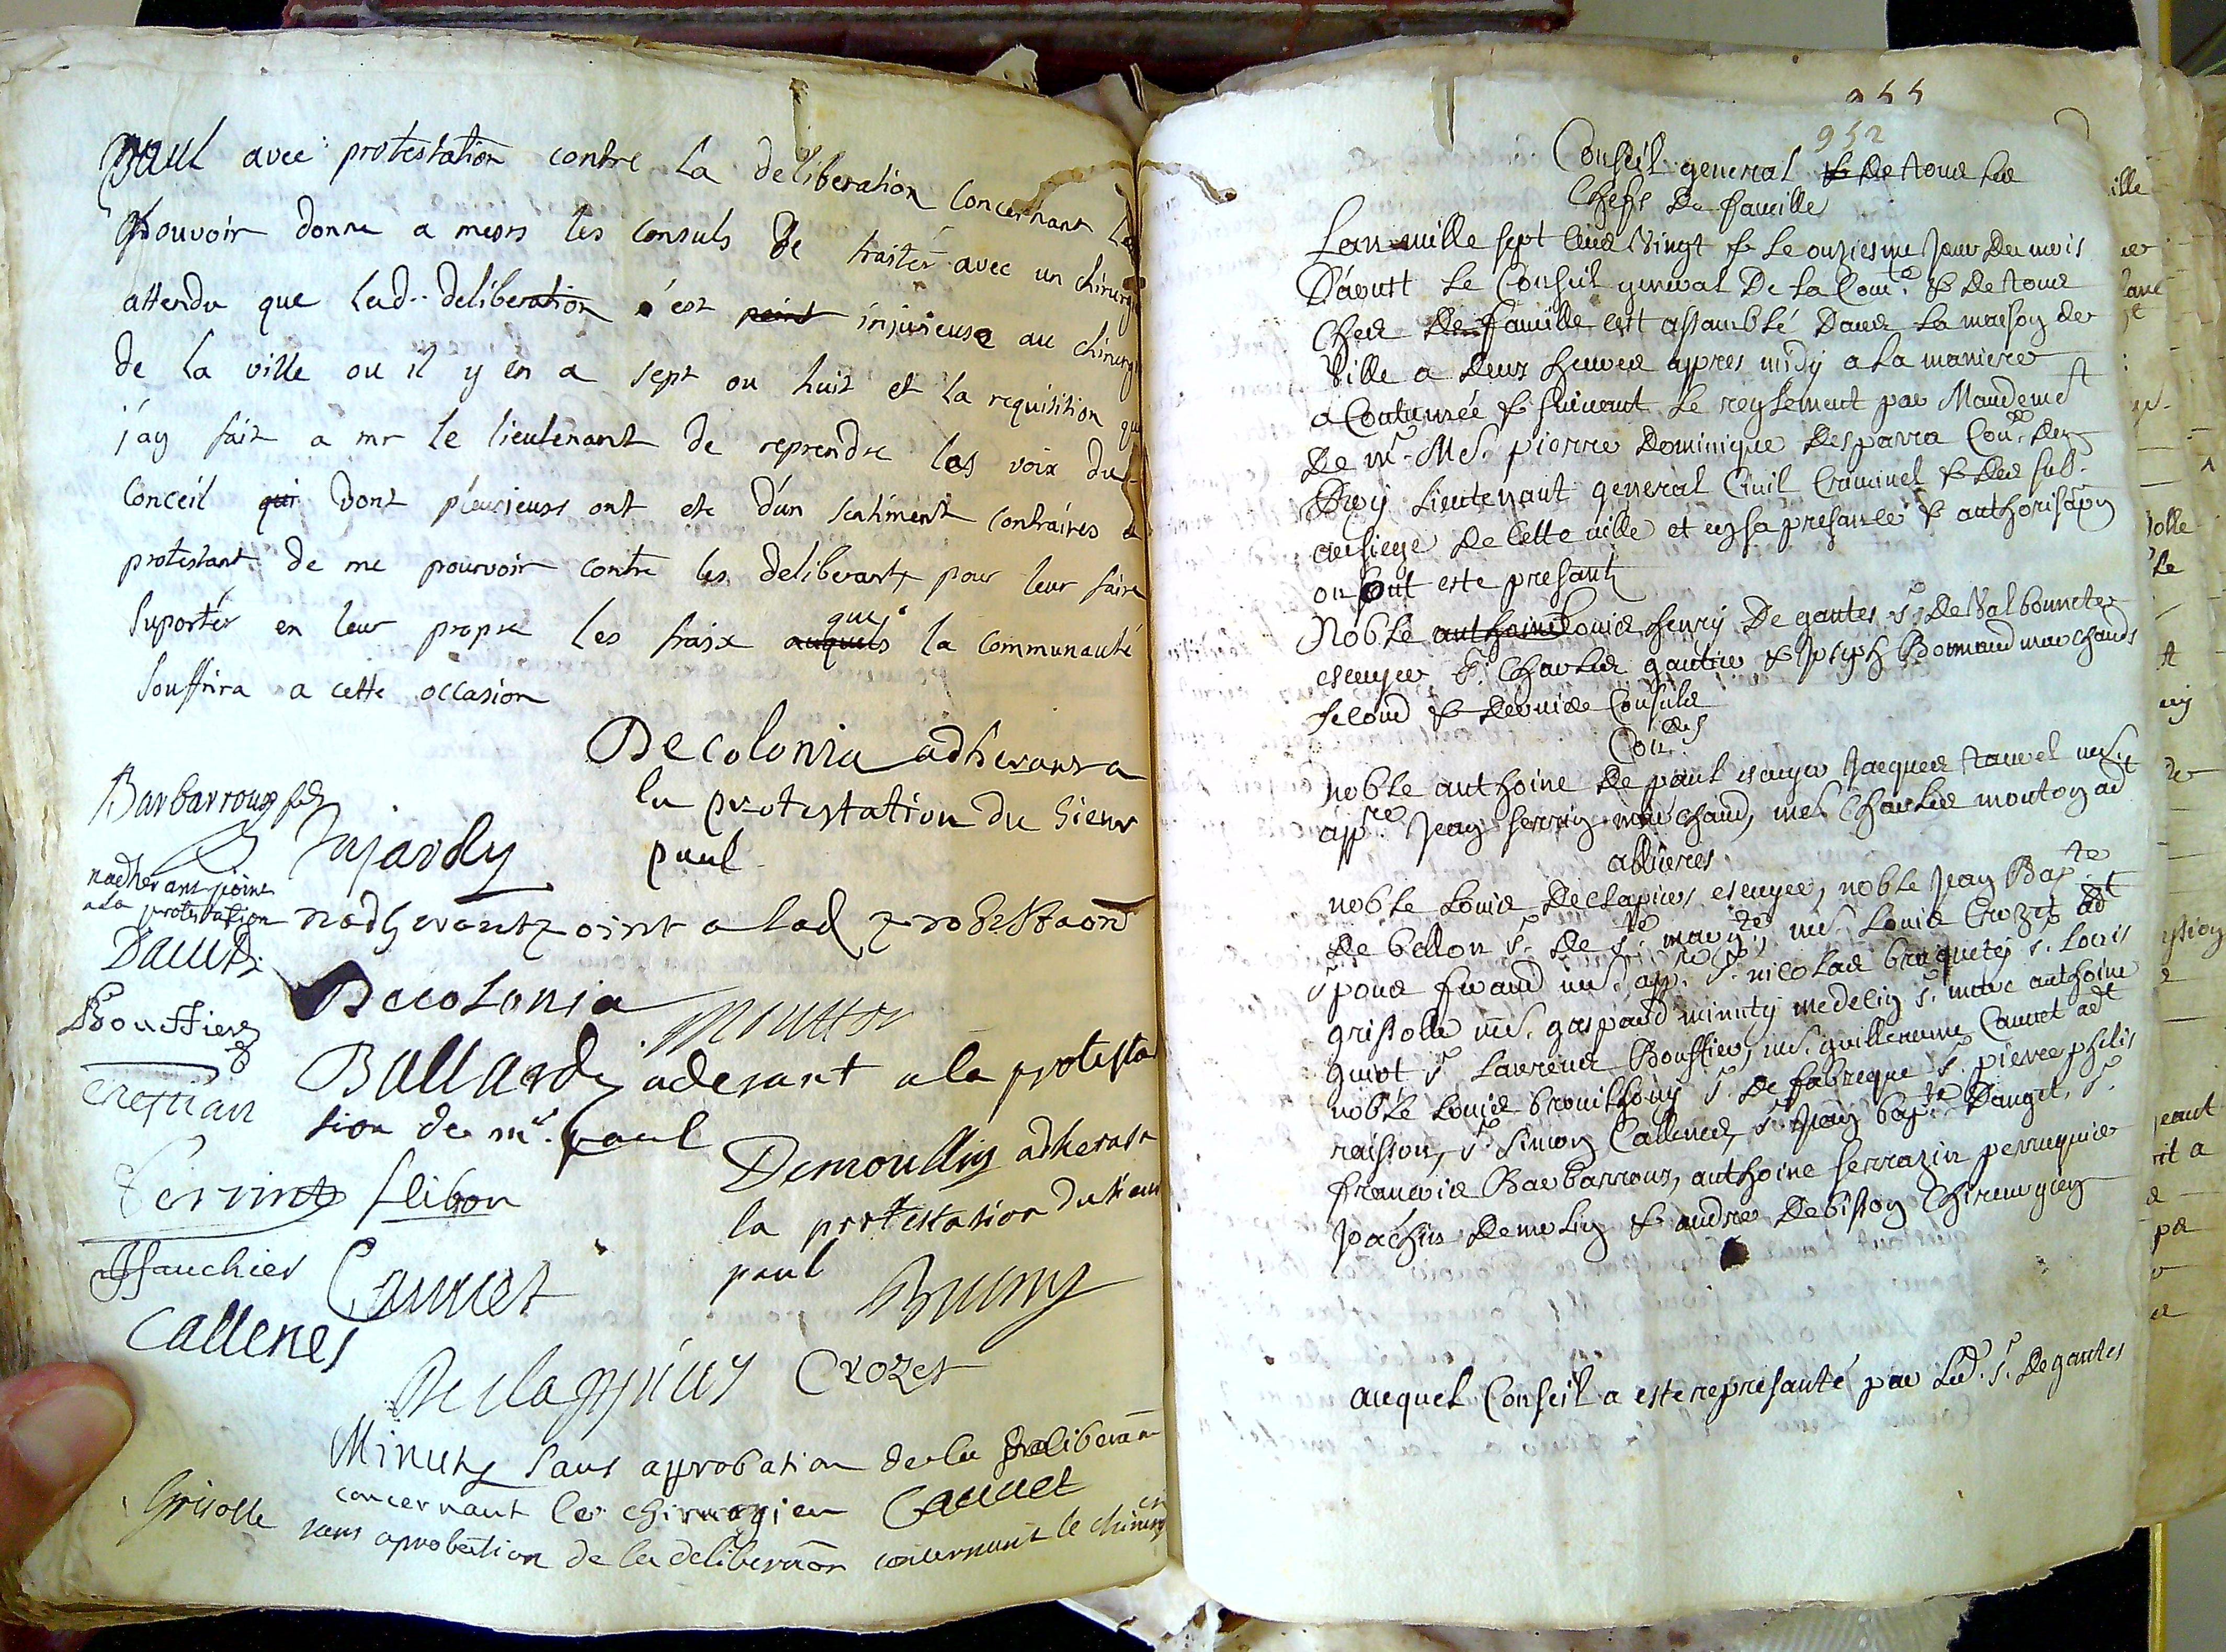 paul avec protestation contre la deliberation concernant le
pouvoir donne a mesrs les consuls de traiter avec un chirurg
attendu que lad. deliberation est point injurieuse au chirurg
de la ville ou il y en a sept ou huit et la requisition que
j'ay fait a mr le lieutenant de reprendre les voix du
Conceil qui dont plusieurs ont ete d'un sentiment contraires et
protestant de me pourvoir contre les deliberants pour leur faire
suporter en leur propre les fraix auquels que la communauté
souffrira a cette occasion
Decolonia adherant a
la protestation du sieur
paul
Barbarroux
Jujardy
nadherant point
a la protestation
nadherant point a lad protestaon
Dauth
Decolonia
Moutton
Bouffier
Ballardy aderant a la protesta
tion de mr. paul
Cretian
Demoullin adherant a
la protestation du sieur
paul
flibon
Fauchier
Cauvet
Bruny
Callenes
Declapiers Crozet
Minuty sans aprobation de la deliberaon
concernant le chirurgien Cauvet
Grisolle sans aprobation de la deliberaon concernant le chirurgien
955
952
Conseil general & de tous les
Chefs de famille
Lan mille sept cens vingt & le onziesme jour du mois
D'aoust le Conseil general De la Comté & de tous
Chefs de famille est assamblé Dans la maison de
Ville a deux heures appres midy a la maniere
acoutumée & suivant le reglement par Mandemt
de mr. Me. pierre Dominique Desparra Conr. du
Roy Lieutenant general Civil Criminel & des sub.
au siege de cette ville et en sa presance & authorisaon
ou sont este presants
Noble anthoine Louis henry De gantes sr. De Valbonnete
escuyer sr. Charles gautier & Joseph Bonnaud marchands
second & dernier Consuls
Conrs
noble anthoine De paul escuyer Jacques tauvel me
appre Jean serrin marchand, me. Charles mouton adt
allieres
noble Louis Declapiers escuyer, noble Jean Bapte
De bellon sr. De ste margte, me. Louis Crozet adt
me. appre sr. nicolas bruquetij s. Loris
grisolle me. gaspard minuty medecin sr. marc anthoine
guiot sr Laurens Bouffier, me. guilleaume Cauvet adt
noble Louis brouilhony sr. De fabregue sr. pierre philis
raisson, sr. Simon Callenes, sr. Jean bapte Dauget, sr.
francois Barbarroux, anthoine serrazin perruquier
Joachin Demolin & andre Debisson Chirurgien
auquel Conseil a este represanté par led. s. De gantes